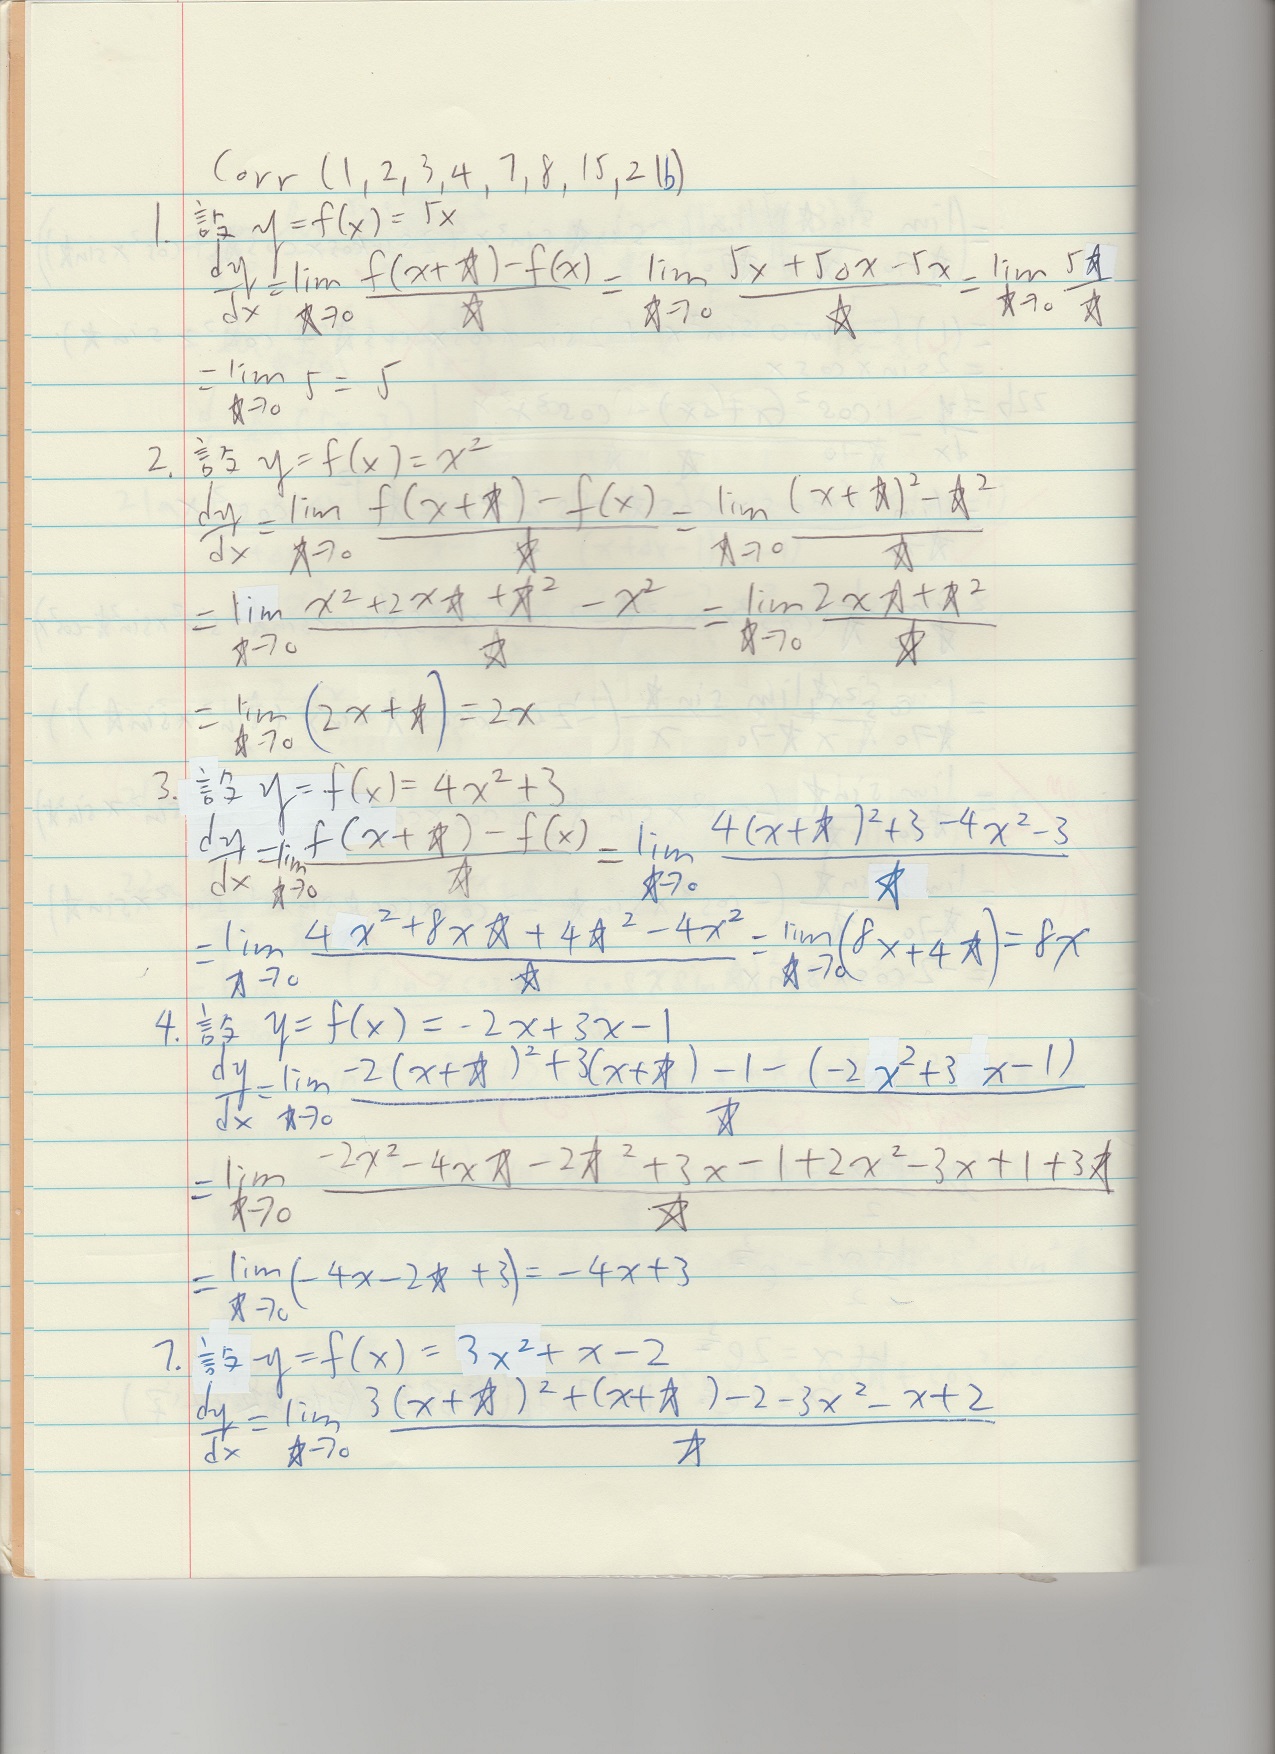 Corr (1, 2, 3, 4, 7, 8, 15, 21b)
1. 設 y = f(x) = 5x
dy/dx = lim ☆→0 (f(x+☆) - f(x))/☆ = lim ☆→0 (5x + 5△x - 5x)/☆ = lim ☆→0 5☆/☆
= lim ☆→0 5 = 5
2. 設 y = f(x) = x²
dy/dx = lim ☆→0 (f(x+☆) - f(x))/☆ = lim ☆→0 ((x+☆)² - ☆²)/☆
= lim ☆→0 (x² + 2x☆ + ☆² - x²)/☆ = lim ☆→0 (2x☆ + ☆²)/☆
= lim ☆→0 (2x + ☆) = 2x
3. 設 y = f(x) = 4x² + 3
dy/dx = lim ☆→0 (f(x+☆) - f(x))/☆ = lim ☆→0 (4(x+☆)² + 3 - 4x² - 3)/☆
= lim ☆→0 (4x² + 8x☆ + 4☆² - 4x²)/☆ = lim ☆→0 (8x + 4☆) = 8x
4. 設 y = f(x) = -2x + 3x - 1
dy/dx = lim ☆→0 (-2(x+☆)² + 3(x+☆) - 1 - (-2x² + 3x - 1))/☆
= lim ☆→0 (-2x² - 4x☆ - 2☆² + 3x - 1 + 2x² - 3x + 1 + 3☆)/☆
= lim ☆→0 (-4x - 2☆ + 3) = -4x + 3
7. 設 y = f(x) = 3x² + x - 2
dy/dx = lim ☆→0 (3(x+☆)² + (x+☆) - 2 - 3x² - x + 2)/☆